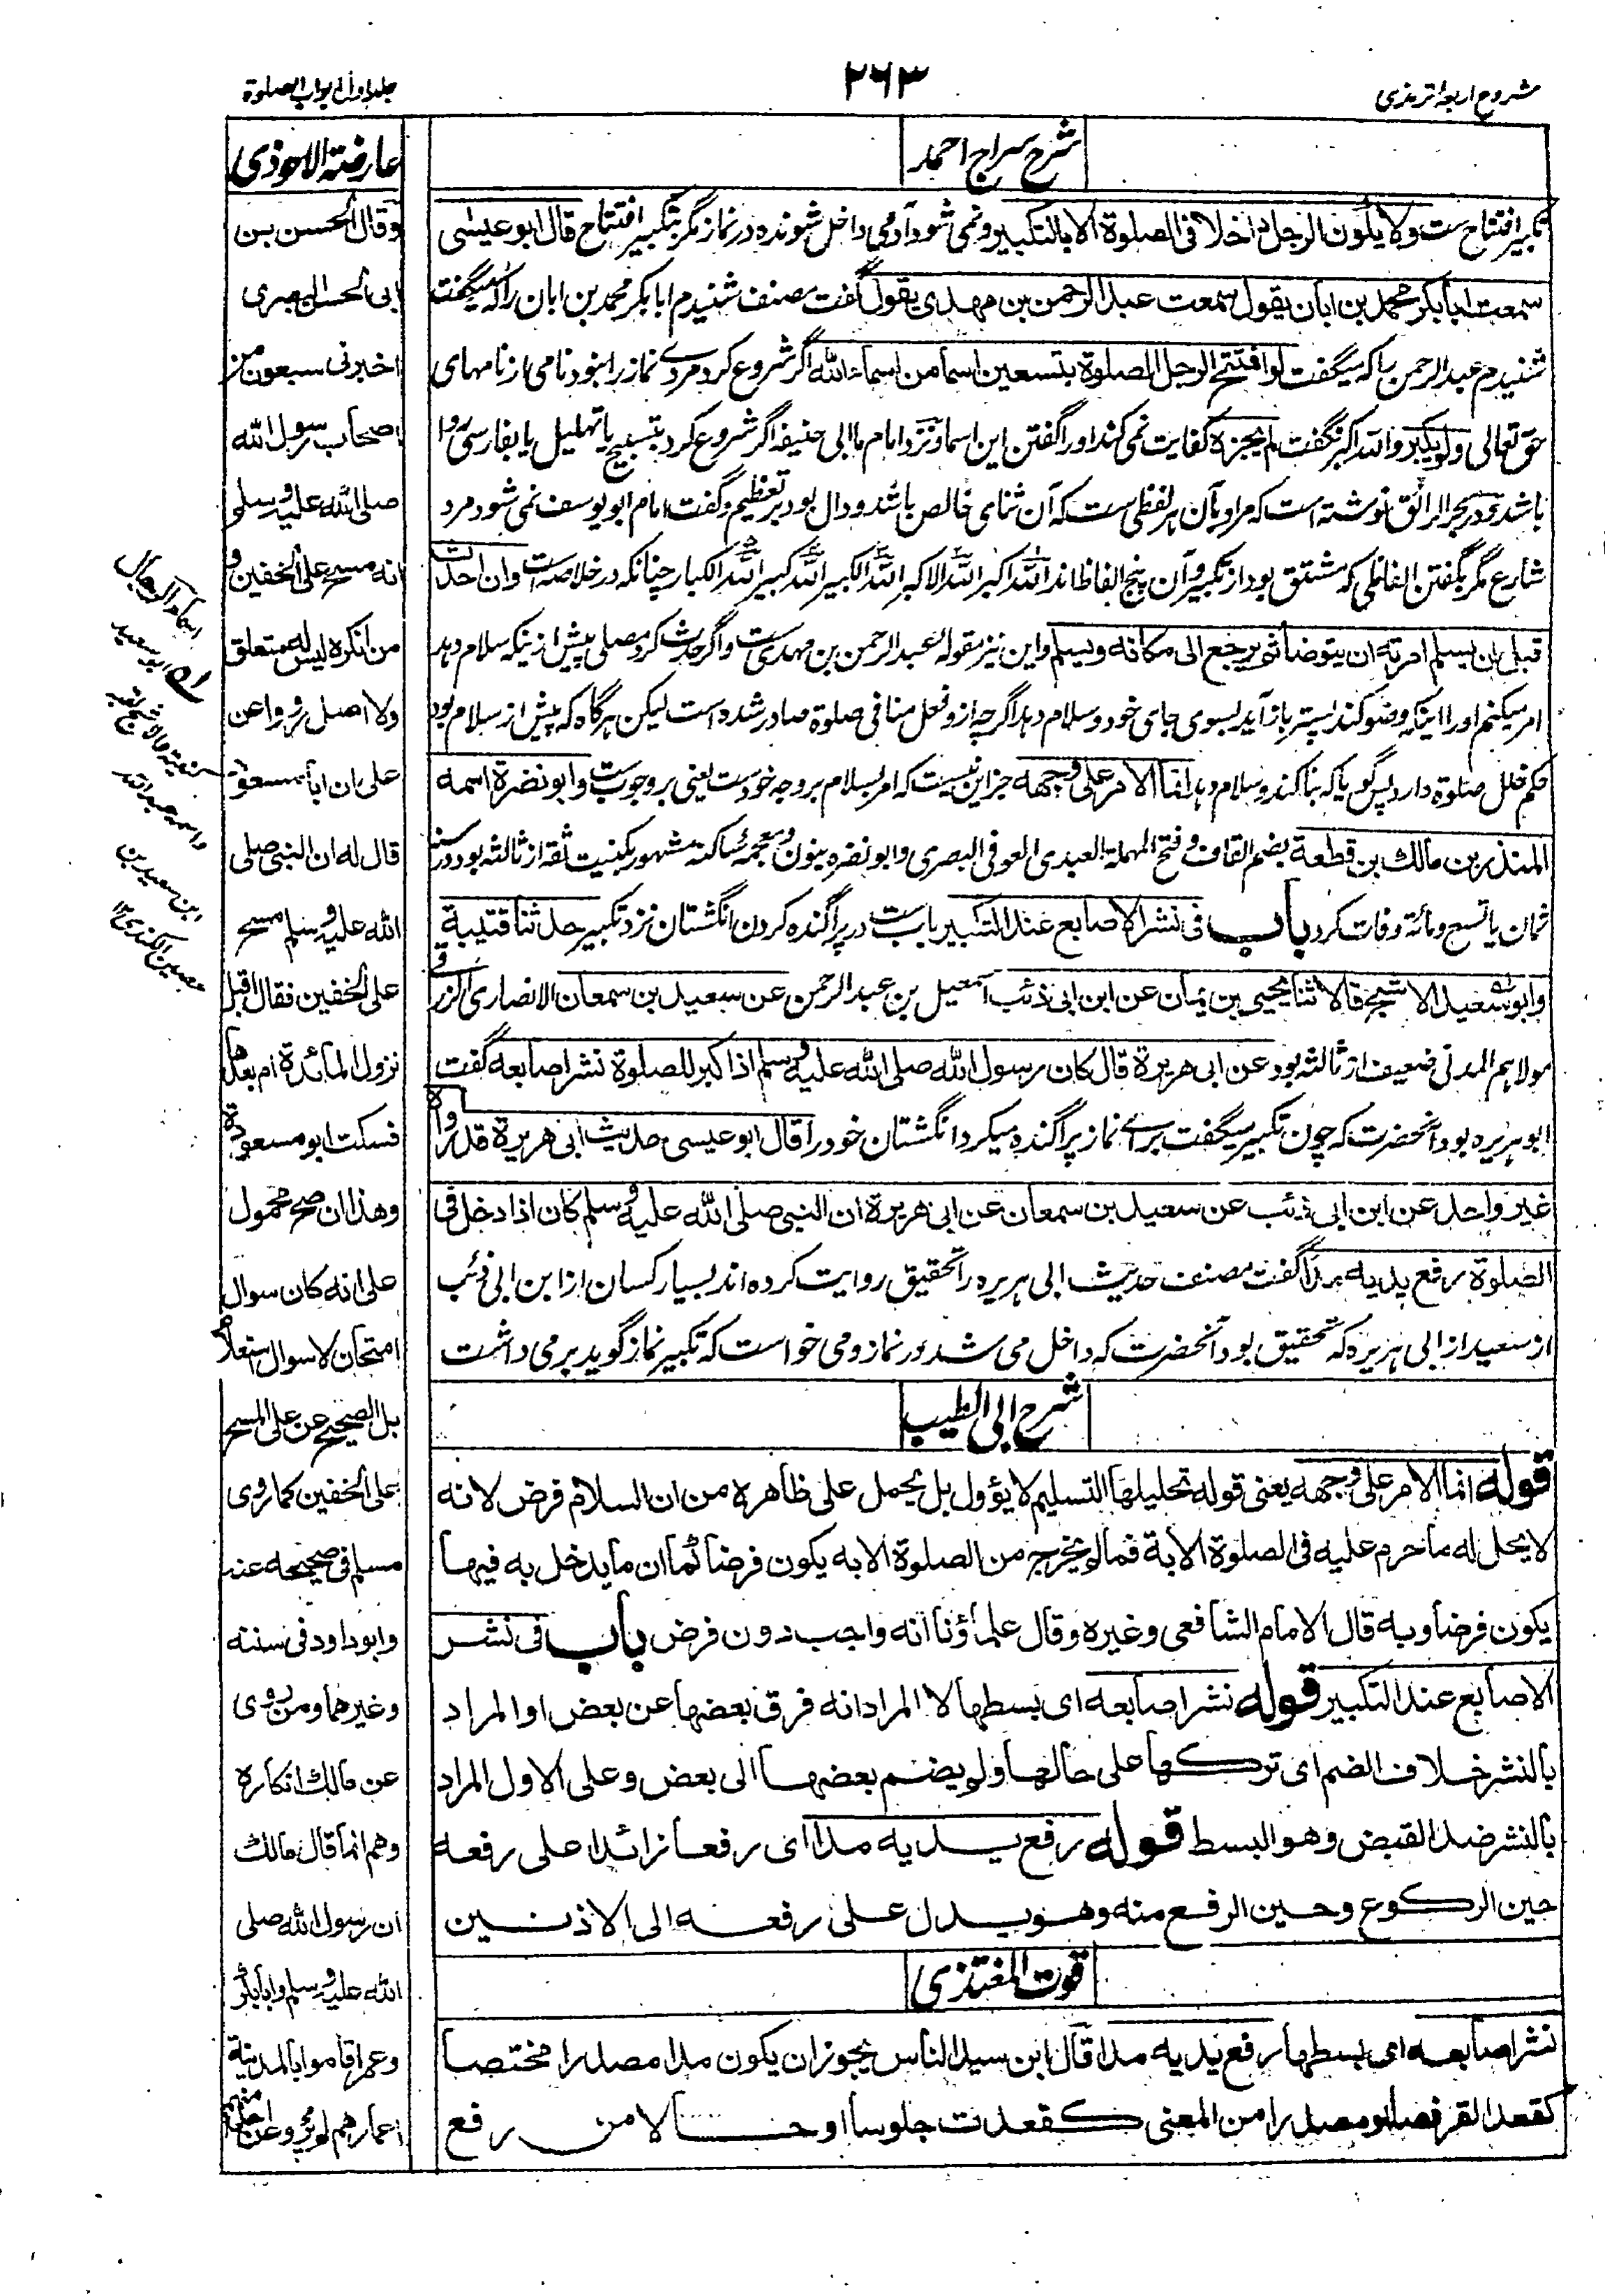 شروح اربعۂ ترمذی
۲۶۳
جلد اول ابواب الصلوة
شرح سراج احمد
تکبیر افتتاح ست ولا یکون الرجل داخلا فی الصلوة الا بالتکبیر ونمی شود آدمی داخل شونده در نماز مگر بتکبیر افتتاح قال ابو عیسی
سمعت ابا بکر محمد بن ابان یقول سمعت عبد الرحمن بن مهدی یقول گفت مصنف شنیدم ابا بکر محمد بن ابان را که میگفت
شنیدم عبد الرحمن را که میگفت لو افتتح الرجل الصلوة بتسعین اسما من اسماء الله اگر شروع کرد مردے نماز را بنود نامی از نامهای
حق تعالی ولم یکبر والله اکبر نگفت لم یجزه کفایت نمی کند او را گفتن این اسما ونزد امام ما ابی حنیفه اگر شروع کرد بتسبیح یا تهلیل یا بفارسی روا
باشد در بحر الرائق نوشته است که مراد بآن هر لفظی ست که آن ثنای خالص باشد ودال بود بر تعظیم وگفت امام ابو یوسف نمی شود مرد
شارع مگر بگفتن الفاظی که مشتق بود از تکبیر وآن پنج الفاظ اند الله اکبر الله الاکبر الله الکبیر الله کبیر الله الکبار چنانکه در خلاصه است وان احدث
قبل ان یسلم امرته ان یتوضأ ثم یرجع الی مکانه ویسلم واین نیز مقوله عبد الرحمن بن مهدی ست واگر حدث کرد مصلی پیش از نیکه سلام دهد
امر میکنم او را اینکه وضو کند پستر باز آید بسوی جای خود وسلام دهد اگر چه از و فعل منافی صلوة صادر شده است لیکن هرگاه که پیش از سلام بود
حکم خلل صلوة دارد پس گویا که بنا کند وسلام دهد انما الامر علی وجهه جز این نیست که امر بسلام بر وجه خود ست یعنی بر وجوب ست وابو نضرة اسمه
المنذر بن مالك بن قطعة بضم القاف وفتح المهملة العبدی العوفی البصری وابو نضره بنون ومعجمه ساکنه مشهور بکنیت ثقه از ثالثه بود در سنه
ثمان یا تسع ومائة وفات کرد باب فی نشر الاصابع عند التکبیر باب ست در پراگنده کردن انگشتان نزد تکبیر حدثنا قتیبة
وابو سعید الاشج قالا ثنا یحیی بن یمان عن ابن ابی ذئب اسمعیل بن عبد الرحمن عن سعید بن سمعان الانصاری الزرقی
مولاهم المدنی ضعیف از ثالثه بود عن ابی هریرة قال کان رسول الله صلی الله علیه وسلم اذا کبر للصلوة نشر اصابعه گفت
ابو هریره بود آنحضرت که چون تکبیر میگفت برائے نماز پراگنده میکرد انگشتان خود را قال ابو عیسی حدیث ابی هریرة قد رواه
غیر واحد عن ابن ابی ذئب عن سعید بن سمعان عن ابی هریرة ان النبی صلی الله علیه وسلم کان اذا دخل فی
الصلوة رفع یدیه مدا گفت مصنف حدیث ابی هریره را تحقیق روایت کرده اند بسیار کسان از ابن ابی ذئب
از سعید از ابی هریره که تحقیق بود آنحضرت که داخل می شد در نماز ومی خواست که تکبیر نماز گوید بر می داشت
شرح ابی الطیب
قوله انما الامر علی وجهه یعنی قوله تحلیلها التسلیم لا یؤول بل یحمل علی ظاهره من ان السلام فرض لانه
لا یحل له ما حرم علیه فی الصلوة الا به فما لم یخرج من الصلوة الا به یکون فرضا کما ان ما یدخل به فیها
یکون فرضا وبه قال الامام الشافعی وغیره وقال علماؤنا انه واجب دون فرض باب فی نشر
الاصابع عند التکبیر قوله نشر اصابعه ای بسطها لا المراد انه فرق بعضها عن بعض او المراد
بالنشر خلاف الضم ای ترکها علی حالها ولم یضم بعضها الی بعض وعلی الاول المراد
بالنشر ضد القبض وهو البسط قوله رفع یدیه مدا ای رفعا زائدا علی رفعه
حین الرکوع وحین الرفع منه وهو یدل علی رفعه الی الاذنین
قوت المغتذی
نشر اصابعه ای بسطها رفع یدیه مدا قال ابن سید الناس یجوز ان یکون مدا مصدرا مختصا
کقعد القرفصاء او مصدرا من المعنی کقعدت جلوسا او حالا من رفع
عارضة الاحوذی
وقال الحسن بن
ابی الحسن البصری
اخبرنی سبعون من
اصحاب رسول الله
صلی الله علیه وسلم
انه مسح علی الخفین و
من انکره لیس له متعلق
ولا اصل ورووا عن
علی ان ابا مسعود
قال له ان النبی صلی
الله علیه وسلم مسح
علی الخفین فقال اقبل
نزول المائدة ام بعدها
فسکت ابو مسعود
وهذا ان صح محمول
علی انه کان سوال
امتحان لا سوال استعلام
بل الصحیح عن علی المسح
علی الخفین کما روی
مسلم فی صحیحه عنه
وابو داود فی سننه
وغیرهما ومن روی
عن مالك انکاره
وهم انما قال مالك
ان رسول الله صلی
الله علیه وسلم وابا بکر
وعمر اقاموا بالمدینة
اعمارهم لم یرو عن احد منهم
ابو سعید
ابن سعید بن
حصین الکندی